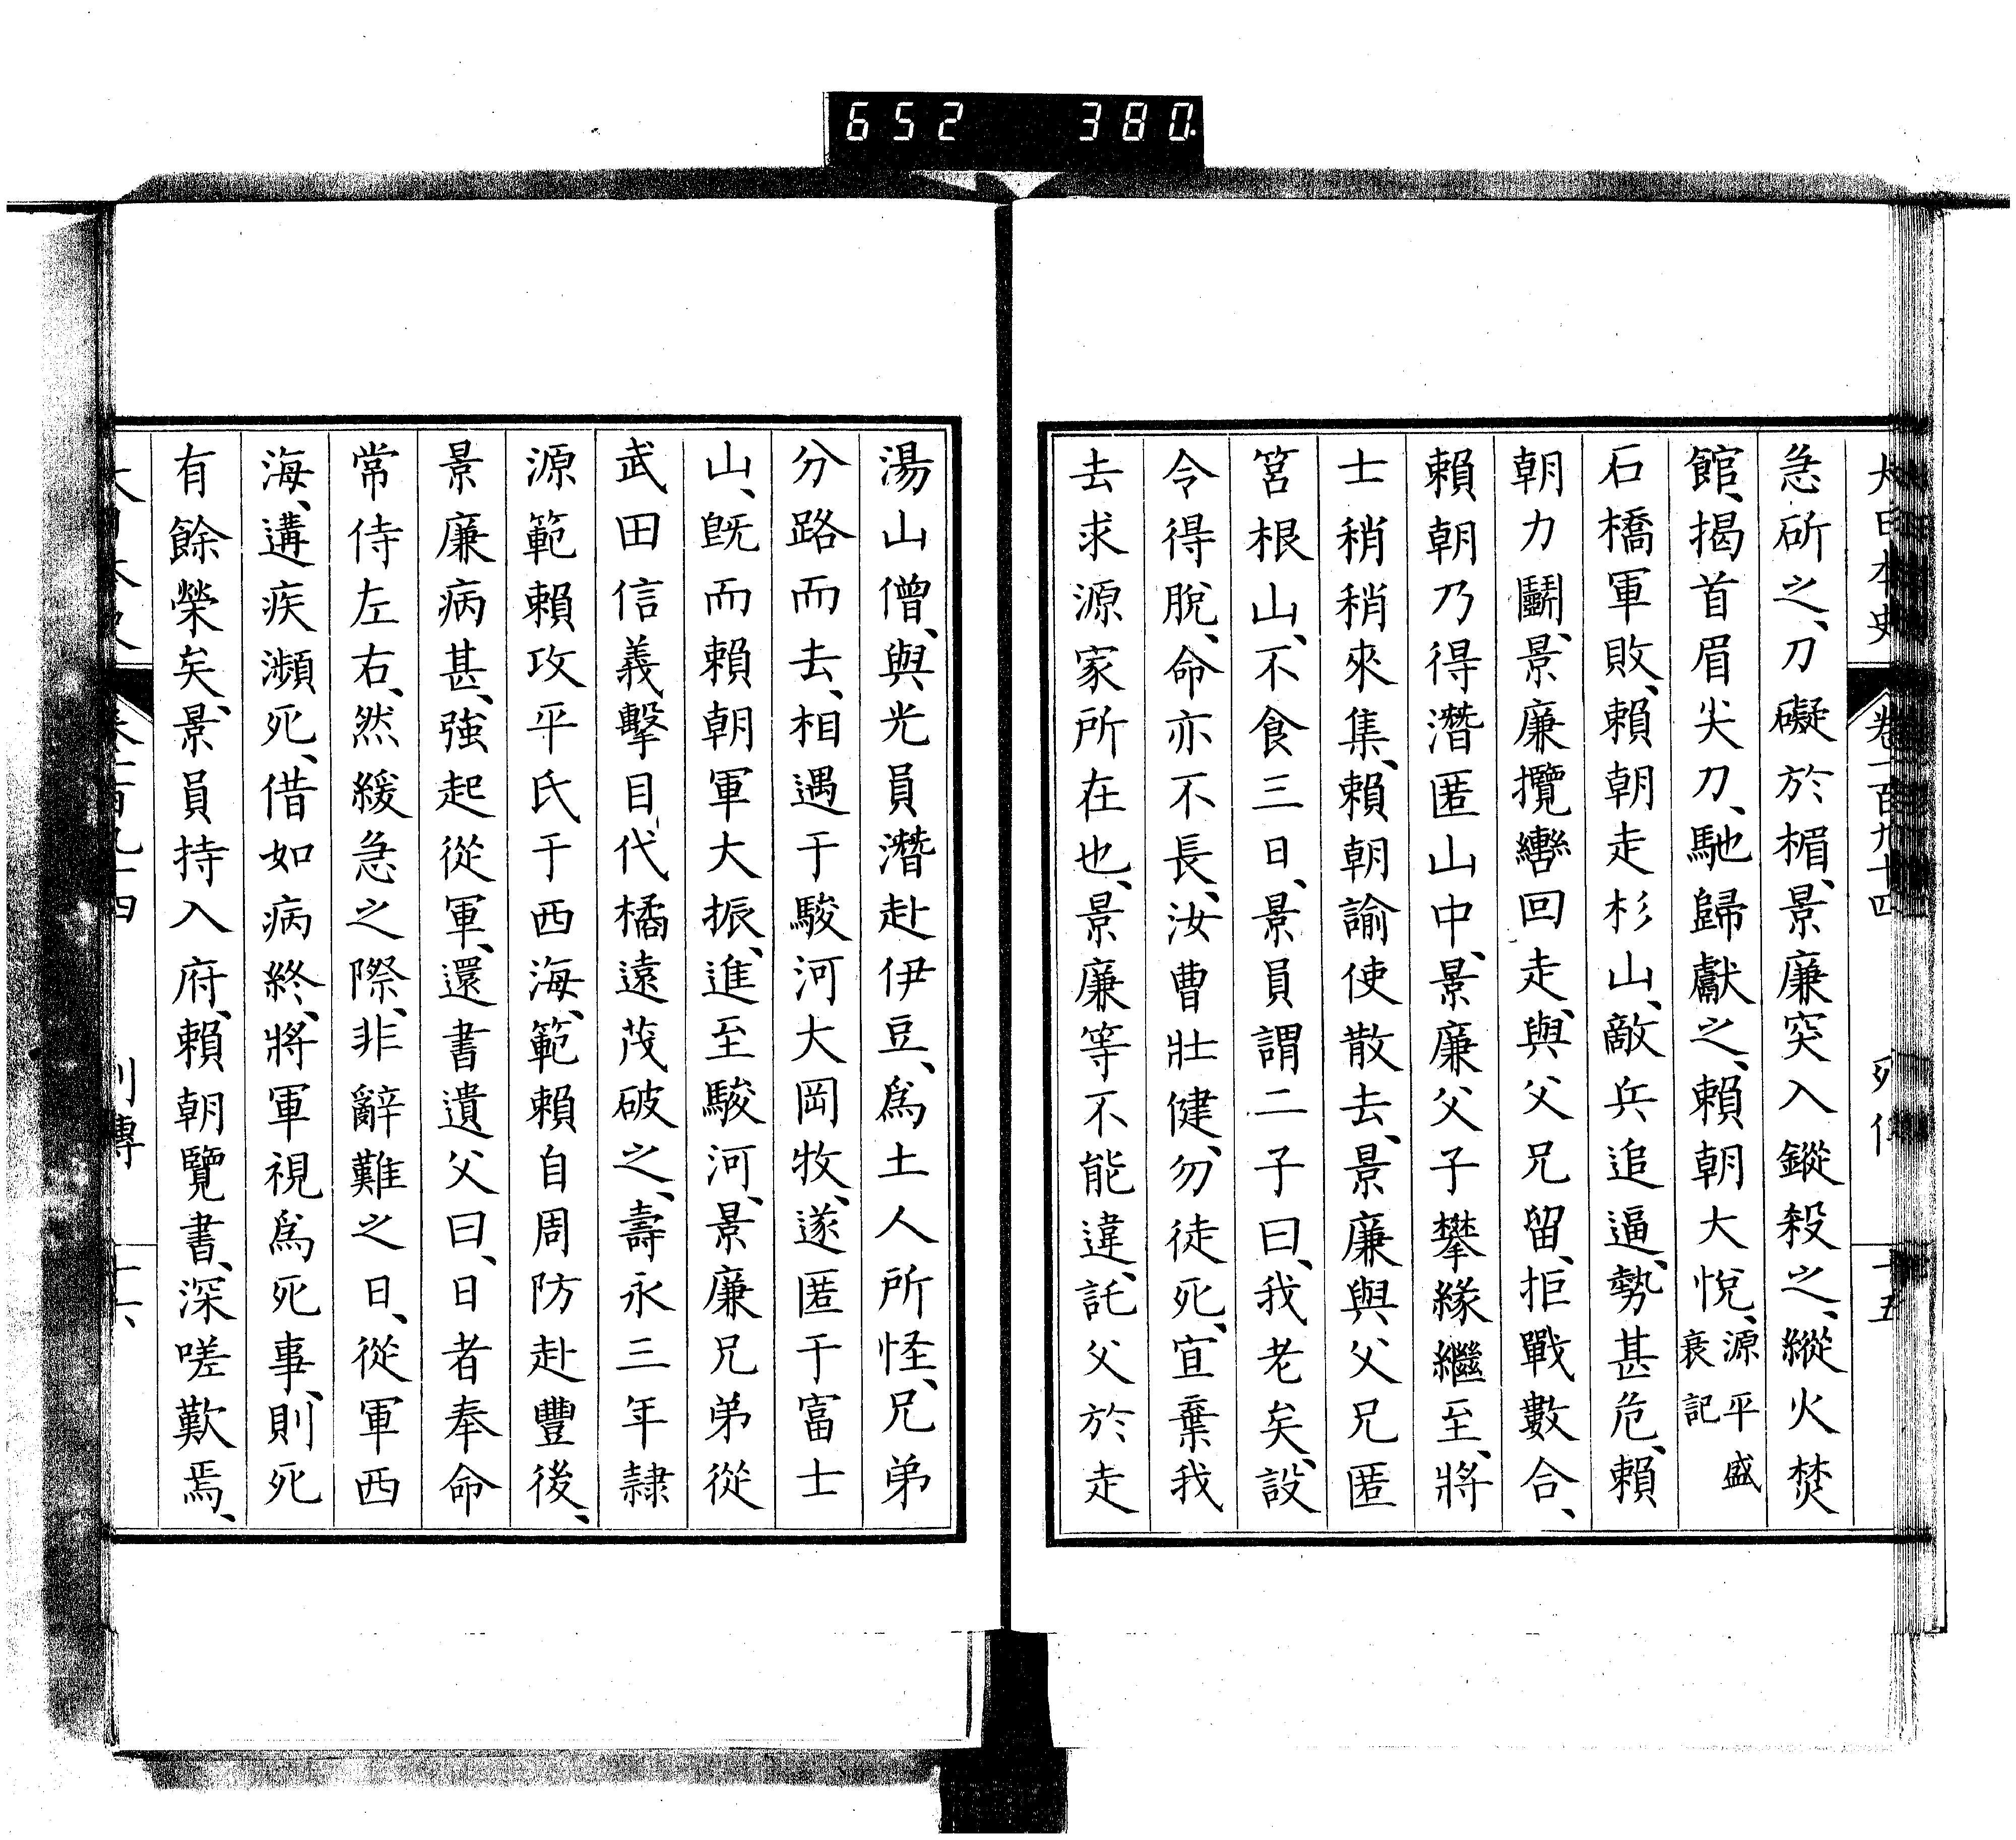 652 380
大日本史 卷一百九十四 列傳 十五
急斫之、刀礙於楣、景廉突入鏦殺之、縱火焚
館、揭首眉尖刀、馳歸獻之、賴朝大悅、源平盛衰記
石橋軍敗、賴朝走杉山、敵兵追逼、勢甚危、賴
朝力鬭、景廉攬轡回走、與父兄留、拒戰數合、
賴朝乃得潛匿山中、景廉父子攀緣繼至、將
士稍稍來集、賴朝諭使散去、景廉與父兄匿
筥根山、不食三日、景員謂二子曰、我老矣、設
令得脫、命亦不長、汝曹壯健、勿徒死、宜棄我
去求源家所在也、景廉等不能違、託父於走
湯山僧、與光員潛赴伊豆、爲土人所怪、兄弟
分路而去、相遇于駿河大岡牧、遂匿于富士
山、旣而賴朝軍大振、進至駿河、景廉兄弟從
武田信義擊目代橘遠茂破之、壽永三年隷
源範賴攻平氏于西海、範賴自周防赴豐後、
景廉病甚、強起從軍、還書遺父曰、日者奉命
常侍左右、然緩急之際、非辭難之日、從軍西
海、遘疾瀕死、借如病終、將軍視爲死事、則死
有餘榮矣、景員持入府、賴朝覽書、深嗟歎焉、
大日本史 卷一百九十四 列傳 十六